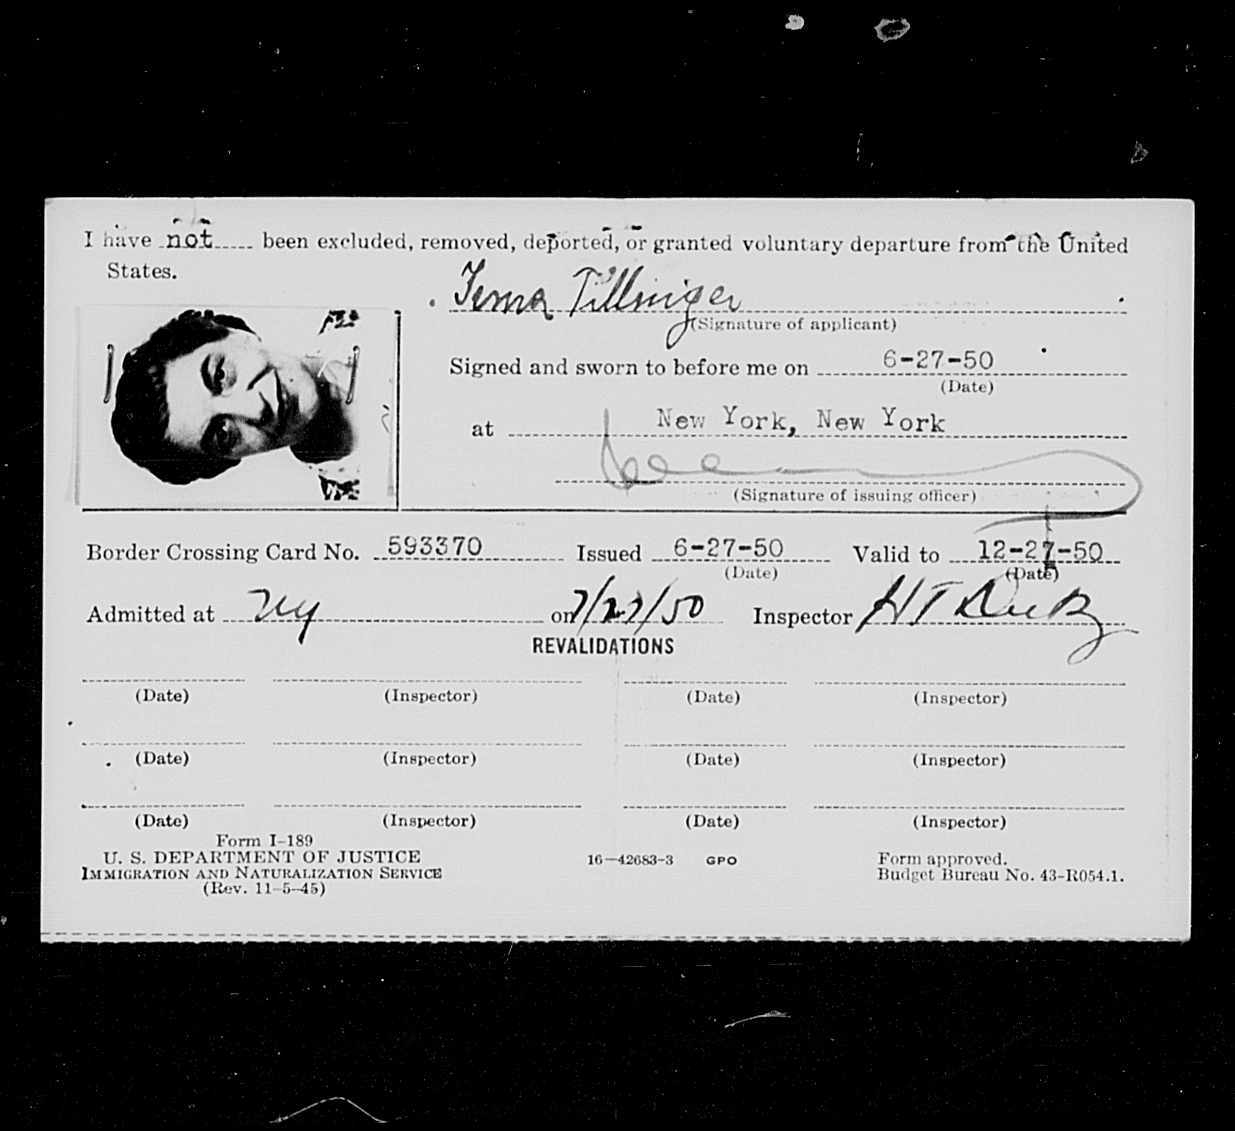 I have not been excluded, removed, deported, or granted voluntary departure from the United
States.
Tema Tillinger
(Signature of applicant)
Signed and sworn to before me on 6-27-50
(Date)
at New York, New York
(Signature of issuing officer)
Border Crossing Card No. 593370 Issued 6-27-50 Valid to 12-27-50
(Date) (Date)
Admitted at NY on 7/27/50 Inspector H T
REVALIDATIONS
(Date) (Inspector) (Date) (Inspector)
(Date) (Inspector) (Date) (Inspector)
(Date) (Inspector) (Date) (Inspector)
Form I-189
U. S. DEPARTMENT OF JUSTICE 16—42683-3 GPO Form approved.
IMMIGRATION AND NATURALIZATION SERVICE Budget Bureau No. 43-R054.1.
(Rev. 11-5-45)